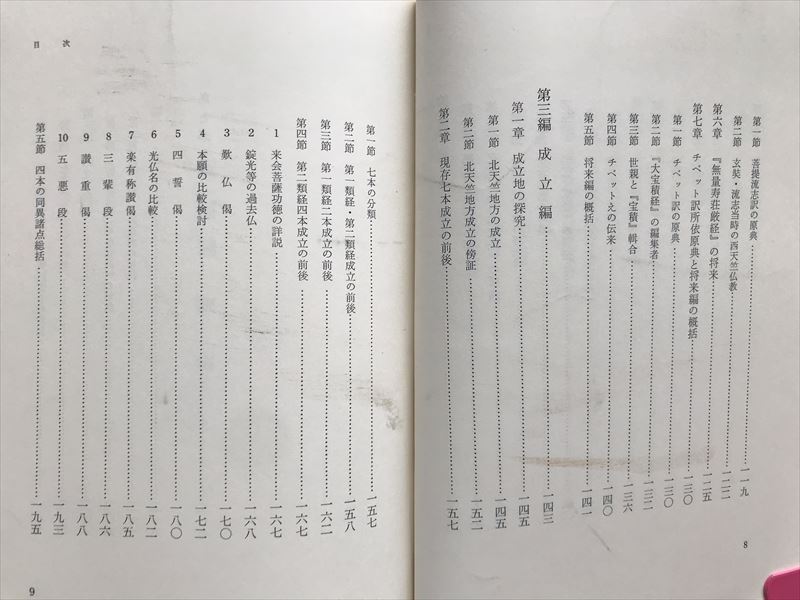 第一節 菩提流志訳の原典……一一九
第二節 玄奘・流志当時の西天竺仏教……一二二
第六章 『無量寿荘厳経』の将来……一二五
第七章 チベット訳所依原典と将来編の概括……一三〇
第一節 チベット訳の原典……一三〇
第二節 『大宝積経』の編集者……一三二
第三節 世親と『宝積』輯合……一三六
第四節 チベットえの伝来……一四〇
第五節 将来編の概括……一四一
第三編 成立編……一四三
第一章 成立地の探究……一四五
第一節 北天竺地方の成立……一四五
第二節 北天竺地方成立の傍証……一五二
第二章 現存七本成立の前後……一五七
8
目次
第一節 七本の分類……一五七
第二節 第一類経・第二類経成立の前後……一五八
第三節 第一類経二本成立の前後……一六二
第四節 第二類経四本成立の前後……一六七
1 来会菩薩功徳の詳説……一六七
2 錠光等の過去仏……一六八
3 歎仏偈……一七〇
4 本願の比較検討……一七二
5 四誓偈……一八〇
6 光仏名の比較……一八二
7 楽有称讃偈……一八五
8 三輩段……一八六
9 讃重偈……一八八
10 五悪段……一九三
第五節 四本の同異諸点総括……一九五
9